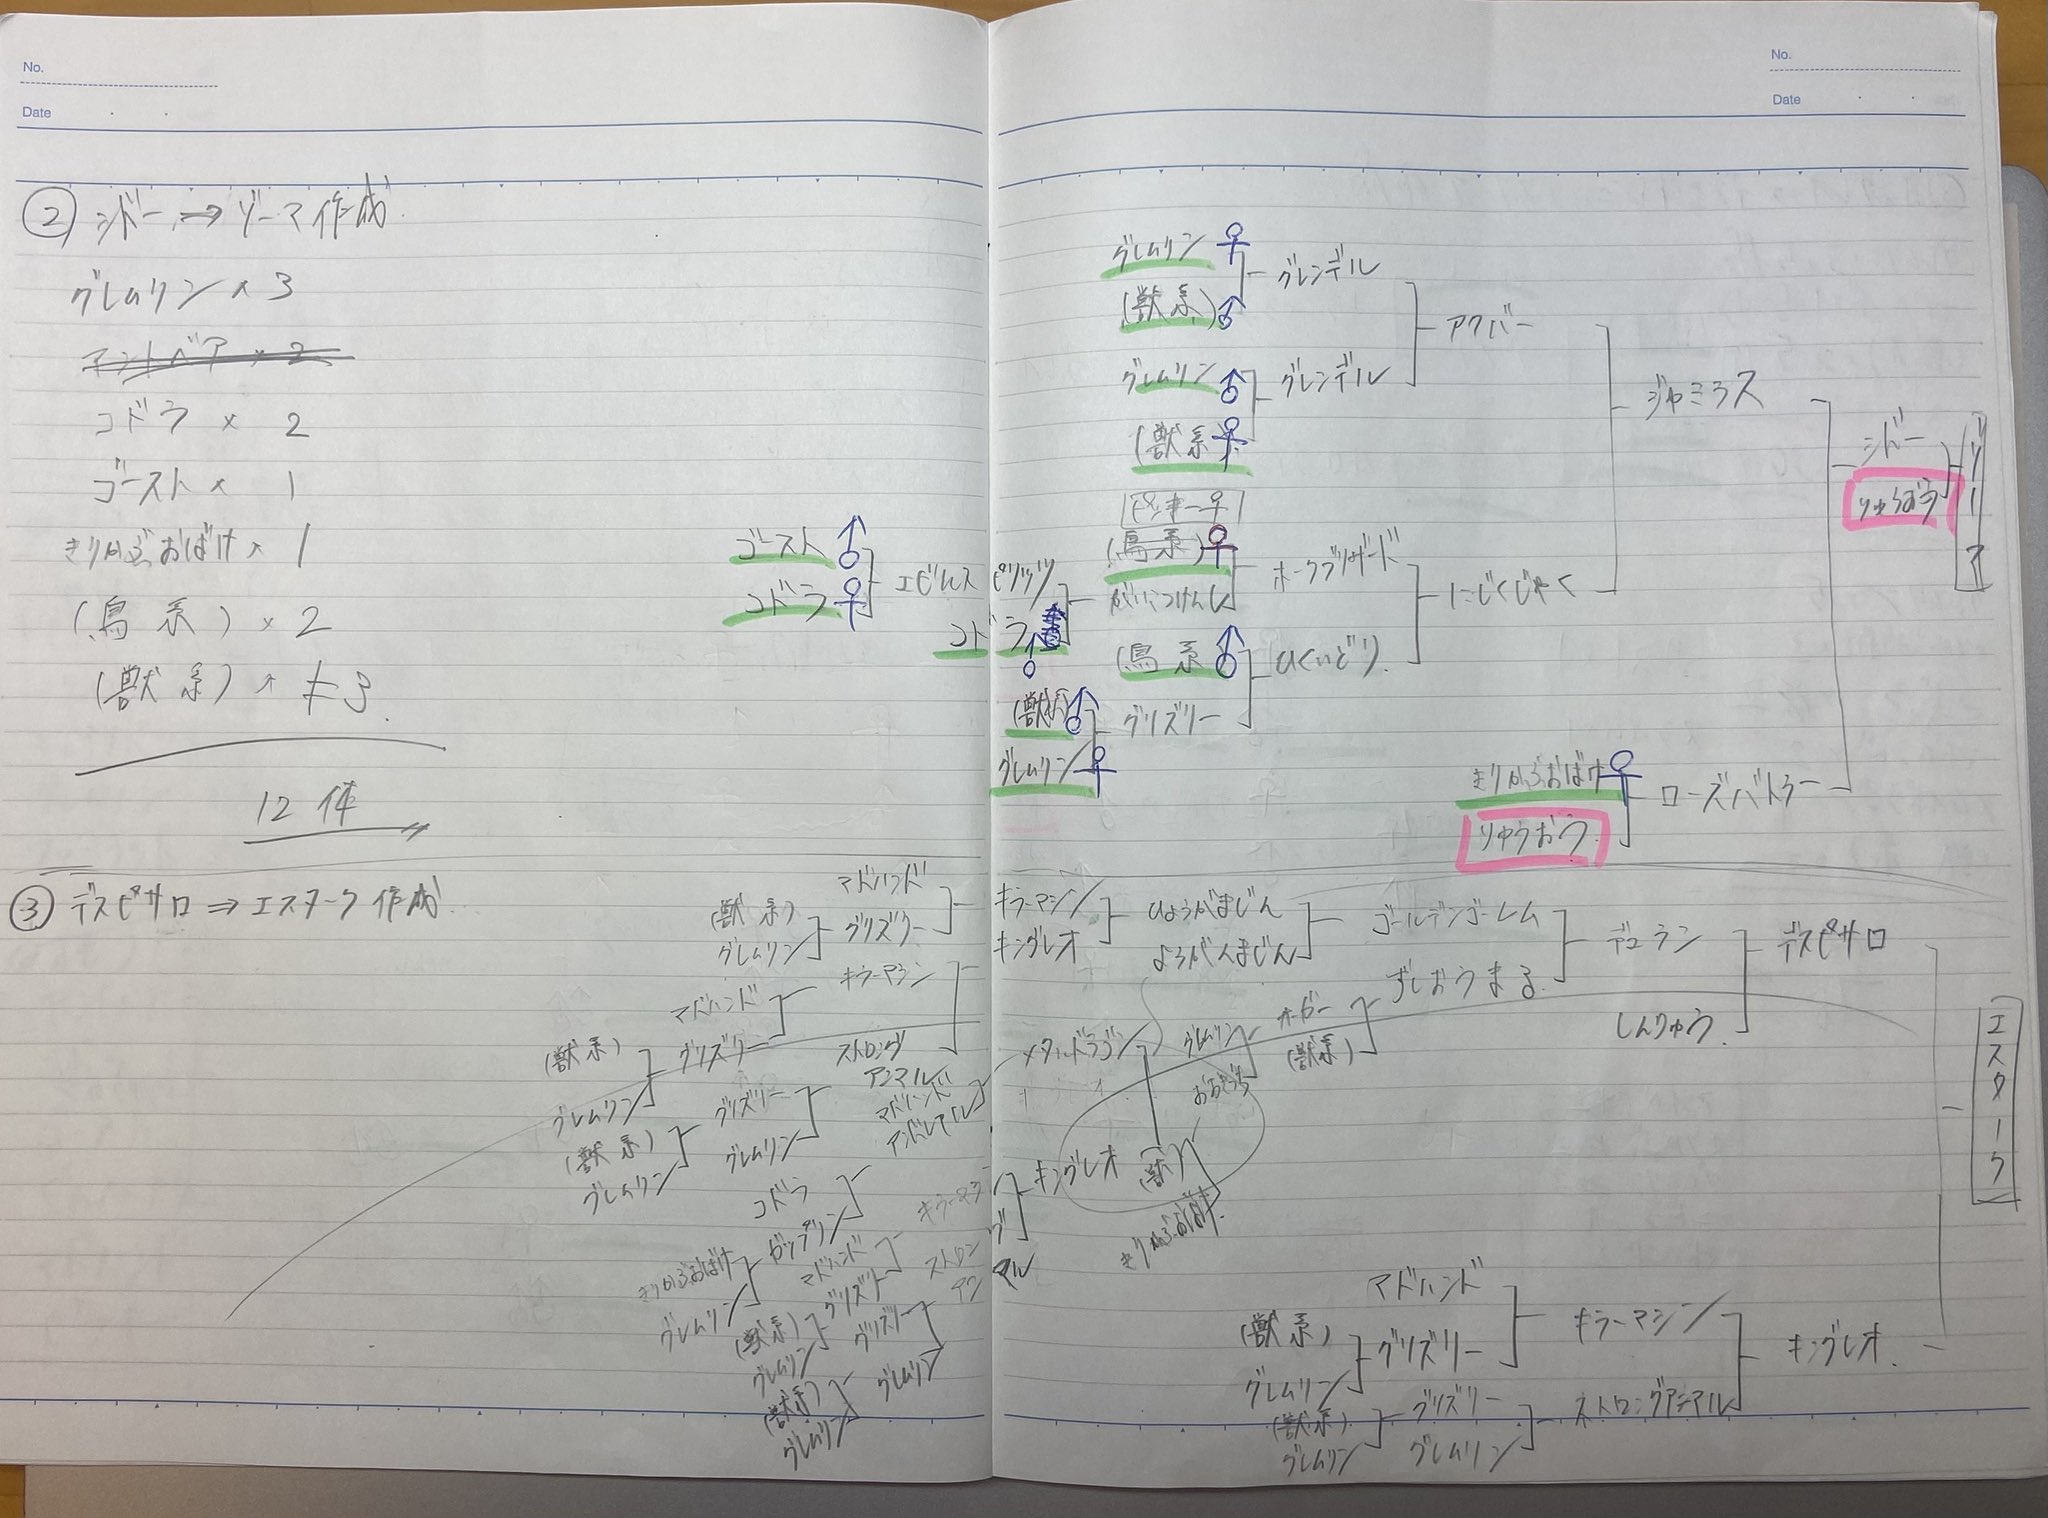 No.
Date
② シドー ⇒ ゾーマ作成
グレムリン × 3
コドラ × 2
ゴースト × 1
きりかぶおばけ × 1
(鳥系) × 2
(獣系) × 3
12体
③ デスピサロ ⇒ エスターク 作成
No.
Date
グレムリン ♀
(獣系) ♂
グレンデル
グレムリン ♂
(獣系) ♀
グレンデル
アクバー
ジャミラス
シドー
りゅうおう
ゾーマ
ピッキー♀
(鳥系) ♀
がいこつけんし
ホークブリザード
にじくじゃく
ゴースト ♂
コドラ ♀
エビルスピリッツ
コドラ ♂
(鳥系) ♂
ひくいどり
(獣系) ♂
グレムリン ♀
グリズリー
きりかぶおばけ ♀
りゅうおう
ローズバトラー
マドハンド
(獣系)
グレムリン
グリズリー
キラーマシン
キングレオ
ひょうがまじん
ようがんまじん
ゴールデンゴーレム
デュラン
デスピサロ
エスターク
マドハンド
(獣系)
グレムリン
グリズリー
キラーマシン
ストロング
アニマル
(獣系)
グレムリン
グリズリー
グレムリン
マドハンド
アンドレアル
メタルドラゴン
グレムリン
おおなめくじ
オーガー
(獣系)
ずしおうまる
しんりゅう
コドラ
ガップリン
きりかぶおばけ
グレムリン
キングレオ
(獣)
きりかぶおばけ
マドハンド
グリズリー
(獣系)
グレムリン
グリズリー
グレムリン
(獣系)
グレムリン
マドハンド
(獣系)
グレムリン
グリズリー
キラーマシン
キングレオ
(獣系)
グレムリン
グリズリー
グレムリン
ストロングアニマル